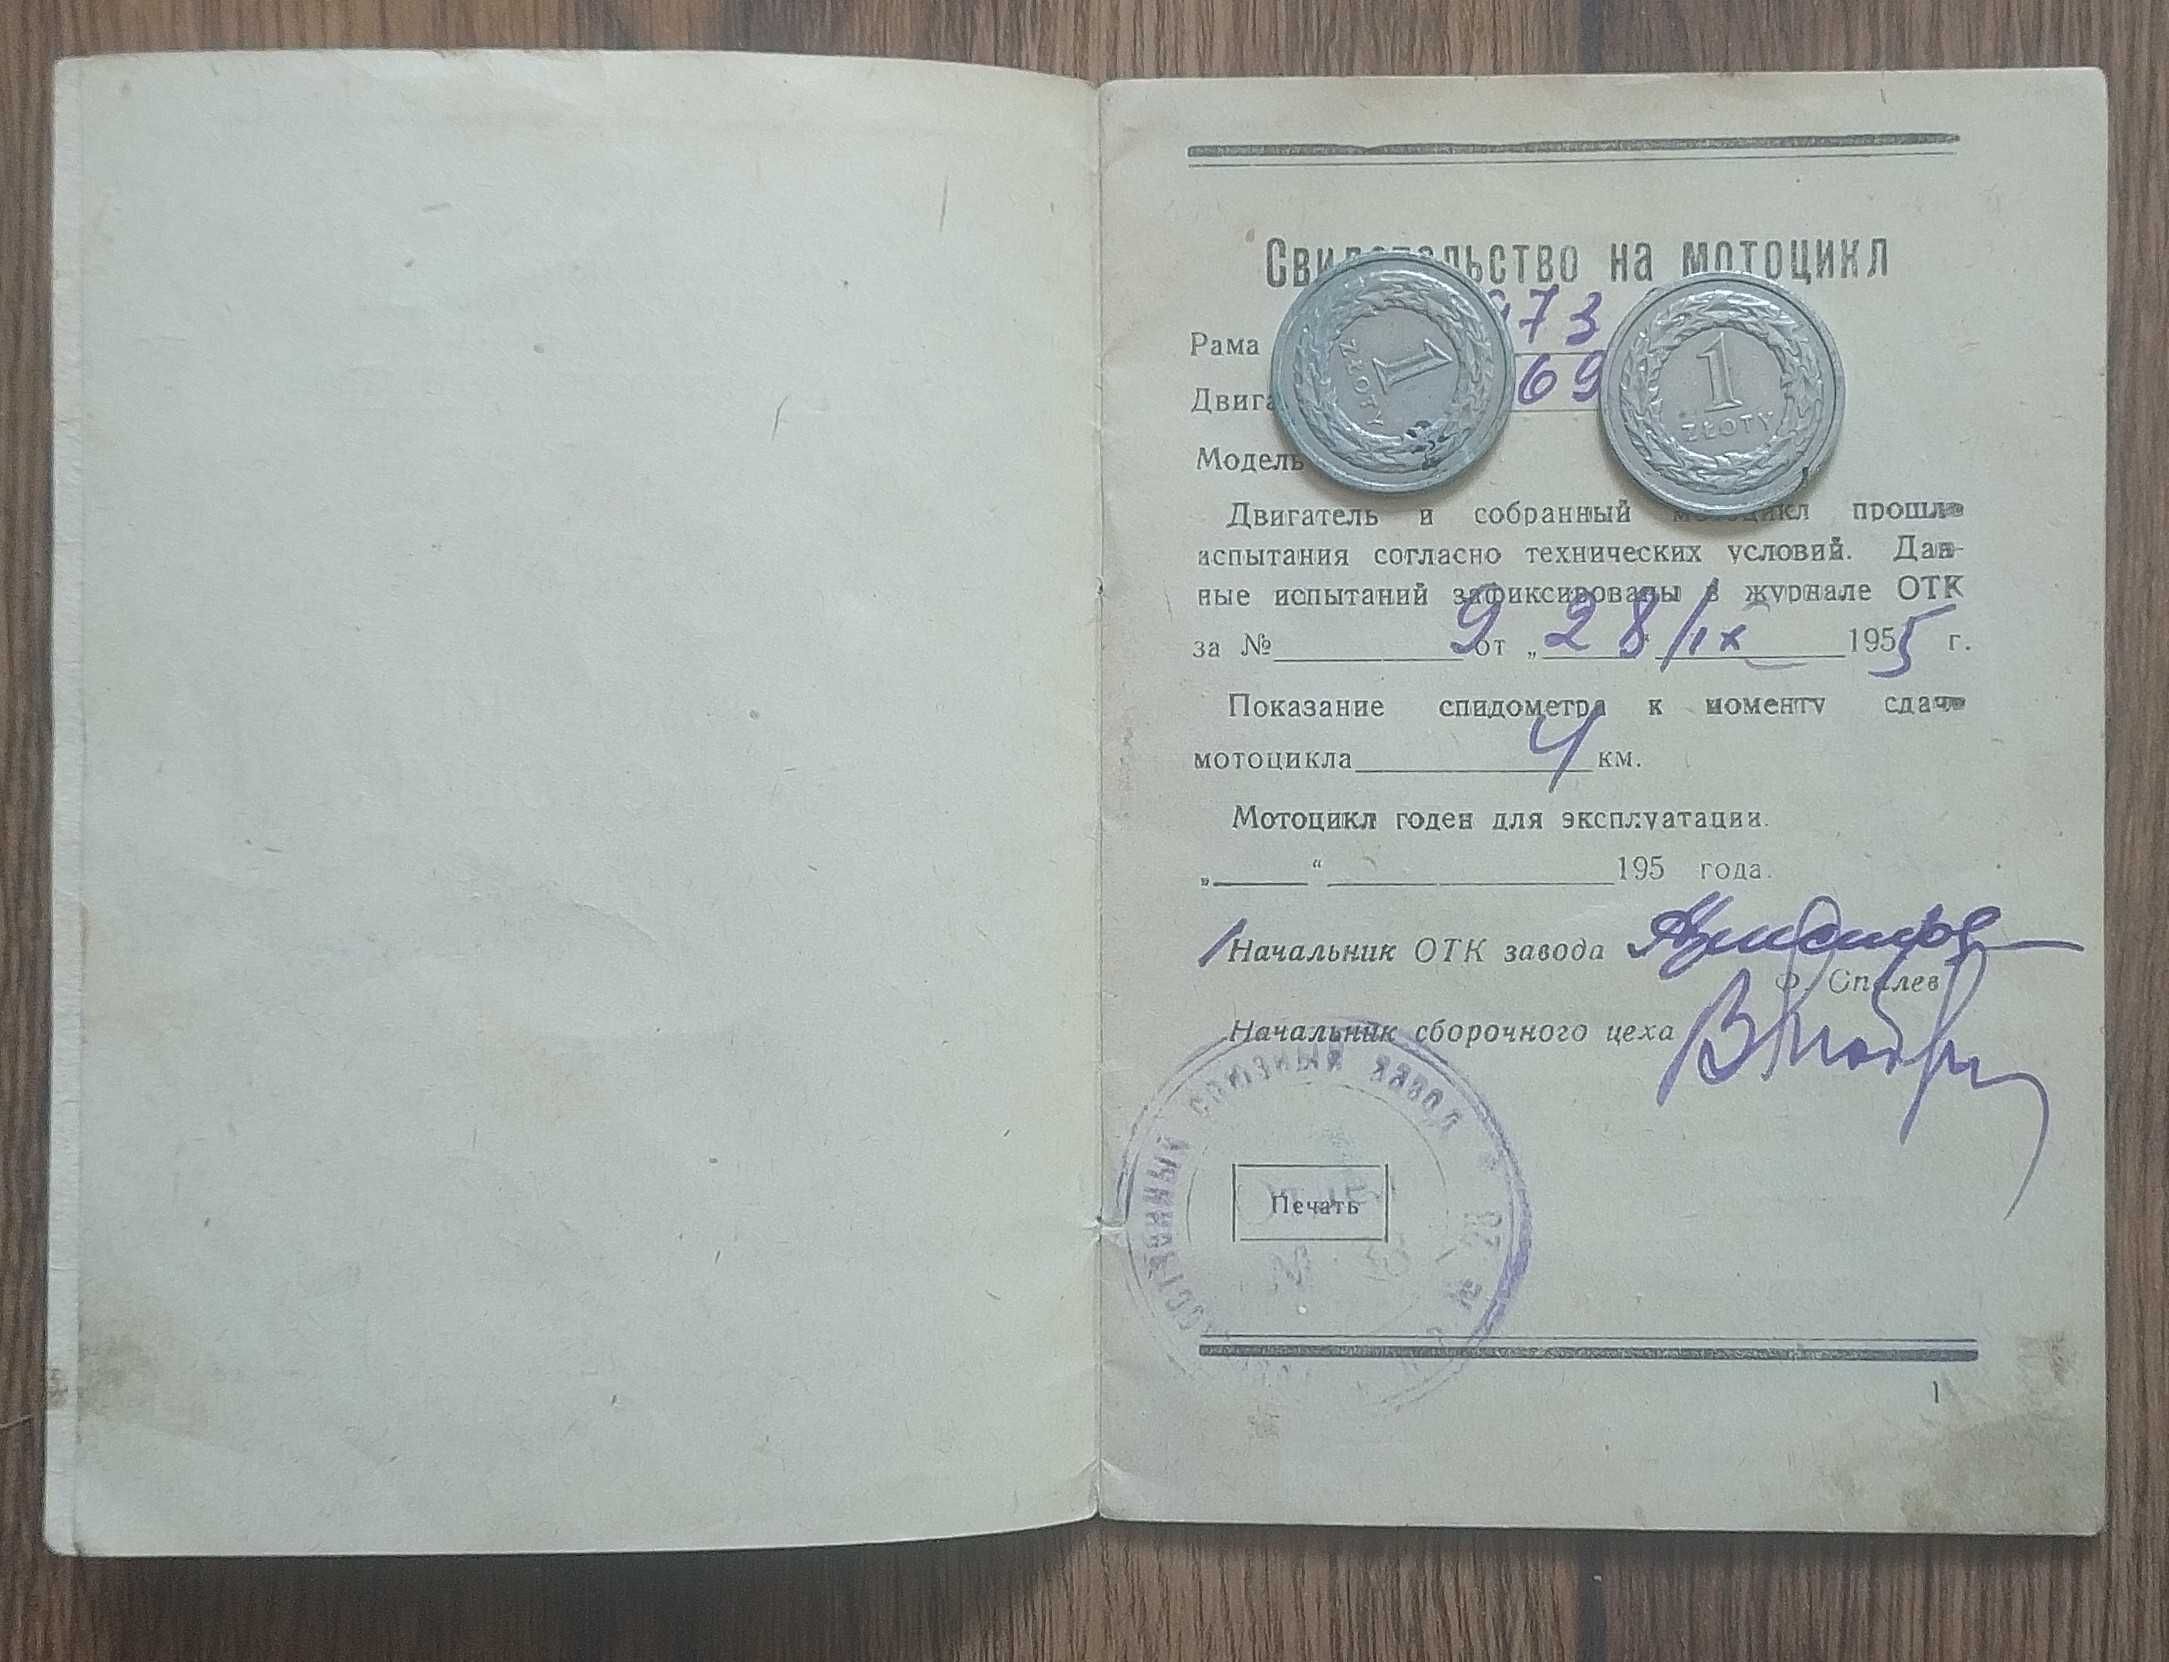 Свидетельство на мотоцикл
Рама 973
1 ZŁOTY
1 ZŁOTY
69
Модель
Двигатель и собранный мотоцикл прошли
испытания согласно технических условий. Дан-
ные испытаний зафиксированы в журнале ОТК
за № 9 от „28“ /IX 1955 г.
Показание спидометра к моменту сдачи
мотоцикла 4 км.
Мотоцикл годен для эксплуатации.
„ “ 195 года.
Начальник ОТК завода
Ф. Спалев
Начальник сборочного цеха
СОЮЗНЫЙ ЗАВОД
Печать
1